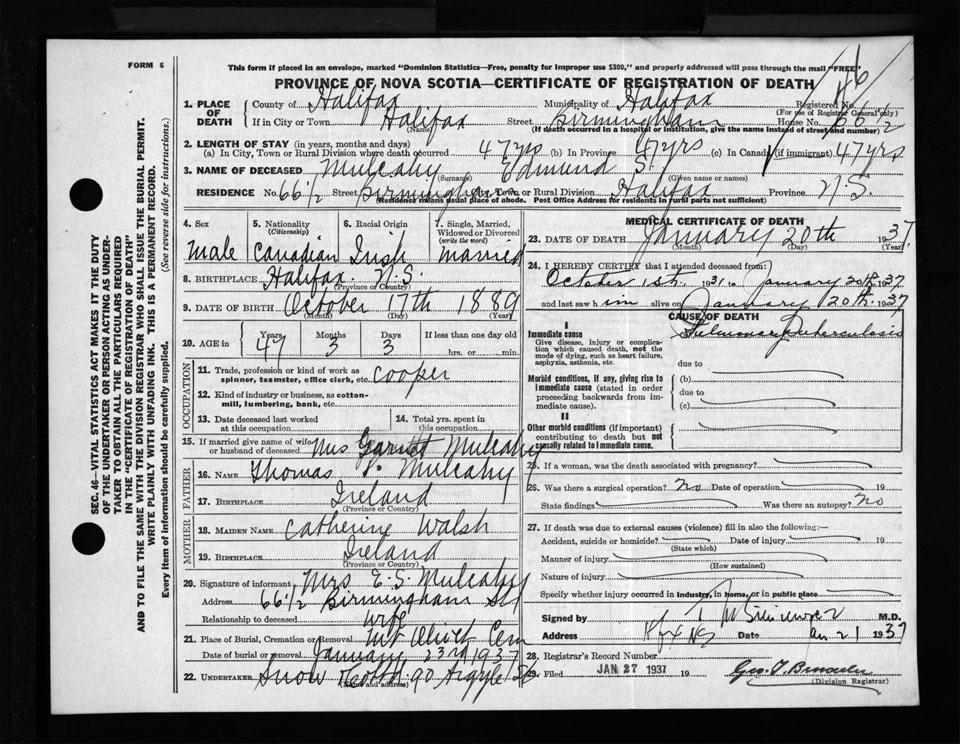 FORM 6
This form if placed in an envelope, marked "Dominion Statistics—Free, penalty for improper use $300," and properly addressed will pass through the mail "FREE"
PROVINCE OF NOVA SCOTIA—CERTIFICATE OF REGISTRATION OF DEATH
SEC. 46—VITAL STATISTICS ACT MAKES IT THE DUTY
OF THE UNDERTAKER OR PERSON ACTING AS UNDER-
TAKER TO OBTAIN ALL THE PARTICULARS REQUIRED
IN THE "CERTIFICATE OF REGISTRATION OF DEATH"
AND TO FILE THE SAME WITH THE DIVISION REGISTRAR WHO SHALL ISSUE THE BURIAL PERMIT.
WRITE PLAINLY WITH UNFADING INK. THIS IS A PERMANENT RECORD.
Every item of information should be carefully supplied. (See reverse side for instructions.)
1. PLACE OF DEATH { County of Halifax Municipality of Halifax Registered No.
(For use of Registrar General only)
If in City or Town Halifax Street Birmingham House No. 66 1/2
(Name) (If death occurred in a hospital or institution, give the name instead of street and number)
2. LENGTH OF STAY (in years, months and days)
(a) In City, Town or Rural Division where death occurred 47 yrs (b) In Province 47 yrs (c) In Canada (if immigrant) 47 yrs
3. NAME OF DECEASED Mulcahy Edmund S.
(Surname) (Given name or names)
RESIDENCE No. 66 1/2 Street Birmingham City, Town or Rural Division Halifax Province N.S.
(Residence means usual place of abode. Post Office Address for residents in rural parts not sufficient)
4. Sex 5. Nationality (Citizenship) 6. Racial Origin 7. Single, Married, Widowed or Divorced (write the word)
Male Canadian Irish Married
8. BIRTHPLACE Halifax N.S.
(Province or Country)
9. DATE OF BIRTH October 17th 1889
(Month) (Day) (Year)
10. AGE in { Years Months Days If less than one day old
47 3 3 hrs. or min.
OCCUPATION
11. Trade, profession or kind of work as spinner, teamster, office clerk, etc. Cooper
12. Kind of industry or business, as cotton-mill, lumbering, bank, etc.
13. Date deceased last worked at this occupation
14. Total yrs. spent in this occupation
15. If married give name of wife or husband of deceased Mrs Garnett Mulcahy
FATHER
16. NAME Thomas P. Mulcahy
17. BIRTHPLACE Ireland
(Province or Country)
MOTHER
18. MAIDEN NAME Catherine Walsh
19. BIRTHPLACE Ireland
(Province or Country)
20. Signature of informant Mrs E. S. Mulcahy
Address 66 1/2 Birmingham St
Relationship to deceased Wife
21. Place of Burial, Cremation or Removal Mt Olivet Cem
Date of burial or removal January 23rd 1937
22. UNDERTAKER Snow & Co Ltd 90 Argyle St
(Name and address)
MEDICAL CERTIFICATE OF DEATH
23. DATE OF DEATH January 20th 1937
(Month) (Day) (Year)
24. I HEREBY CERTIFY that I attended deceased from
October 1st 1931 to January 20th 1937
and last saw him alive on January 20th 1937
CAUSE OF DEATH
I
Immediate cause Pulmonary Tuberculosis
Give disease, injury or complication which caused death, not the mode of dying, such as heart failure, asphyxia, asthenia, etc.
due to
Morbid conditions, if any, giving rise to immediate cause (stated in order proceeding backwards from immediate cause).
(b)
due to
(c)
II
Other morbid conditions (if important) contributing to death but not causally related to immediate cause.
25. If a woman, was the death associated with pregnancy?
26. Was there a surgical operation? No Date of operation 19
State findings Was there an autopsy? No
27. If death was due to external causes (violence) fill in also the following:—
Accident, suicide or homicide? Date of injury 19
(State which)
Manner of injury
(How sustained)
Nature of injury
Specify whether injury occurred in industry, in home, or in public place
Signed by M.D.
Address Hfx NS Date Jan 21 1937
28. Registrar's Record Number
29. Filed JAN 27 1937 19
(Division Registrar)